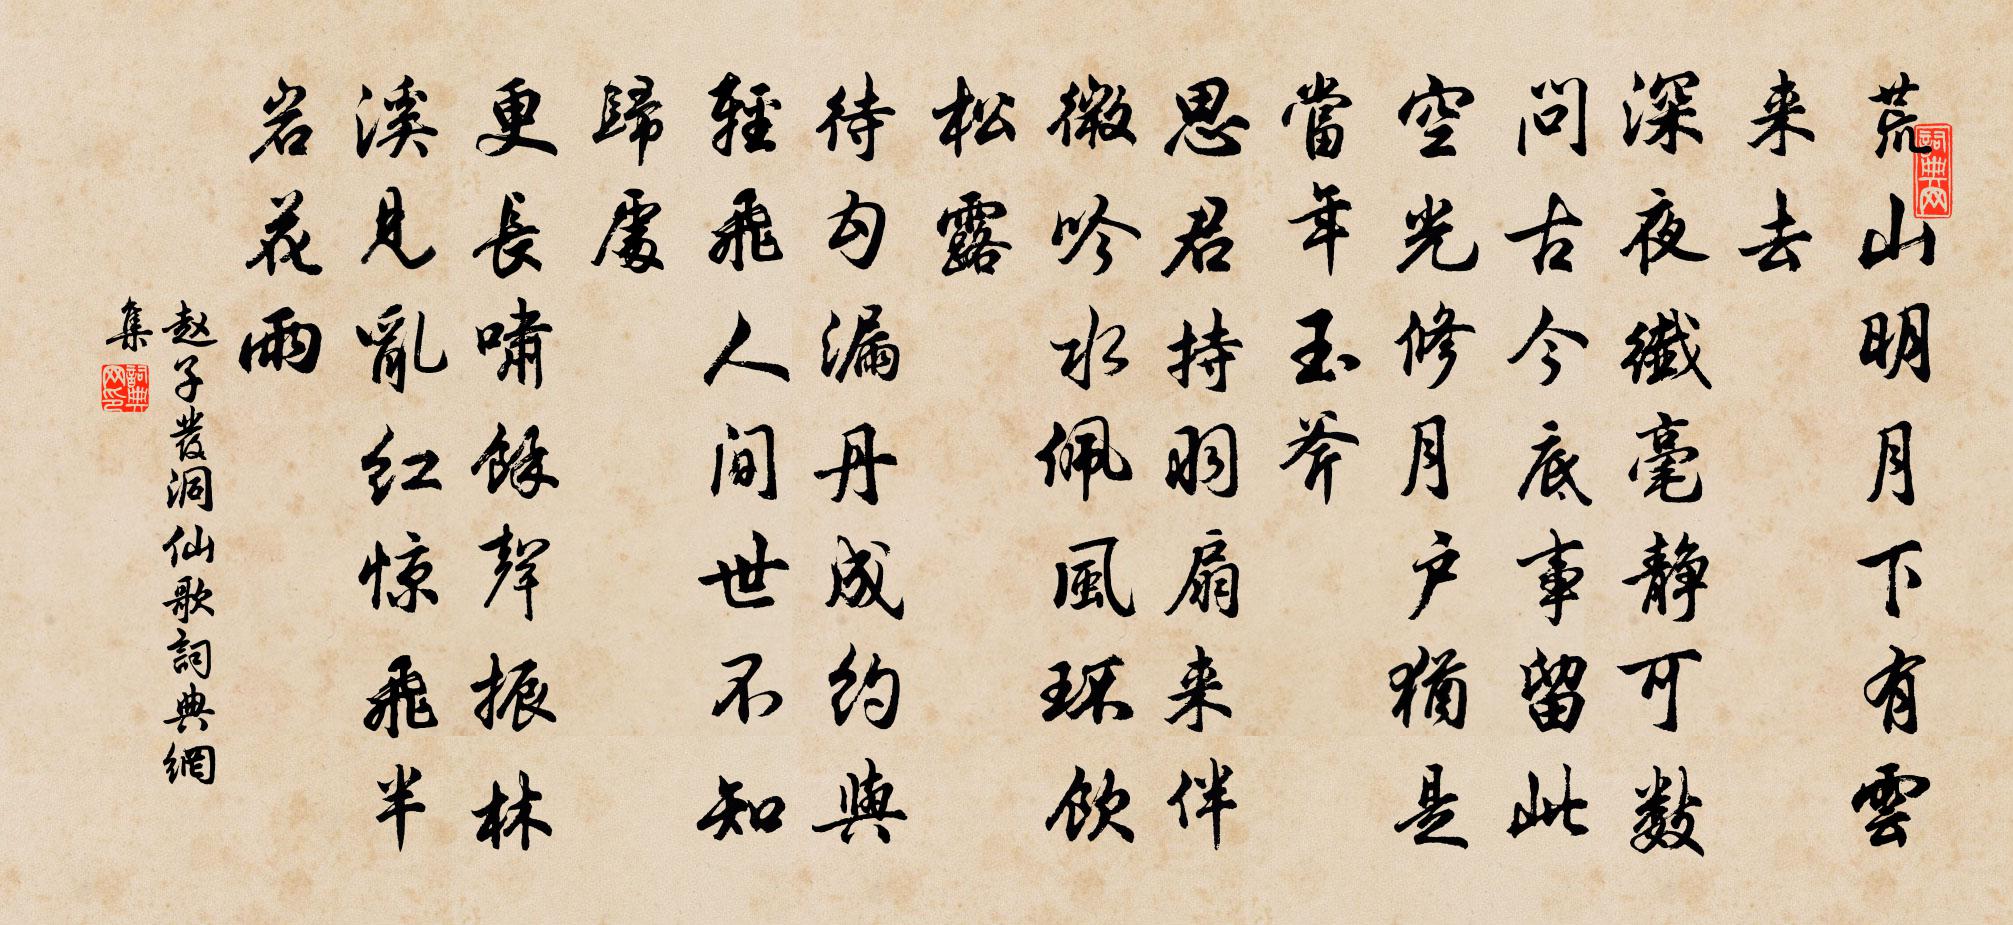 荒山明月下有雲
来去
深夜纖毫静可數
問古今底事留此
空光修月户猶是
當年玉斧
思君持羽扇来伴
微吟水佩風環飲
松露
待勾漏丹成約與
輕飛人间世不知
歸處
更長嘯餘聲振林
溪見亂红惊飛半
岩花雨
赵子發洞仙歌詞典網
集
詞典网
詞典网印